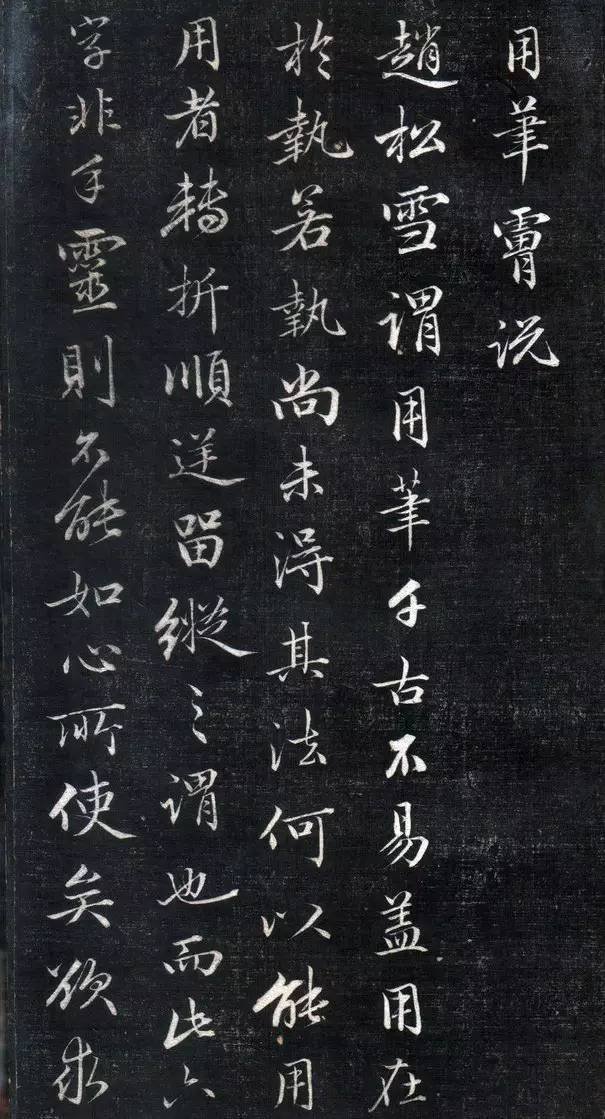 用筆说
趙松雪謂用筆千古不易盖用在
於執若執尚未得其法何以能用
用者轉折順逆留縱之謂也而此六
字非手靈則不能如心所使矣欲求